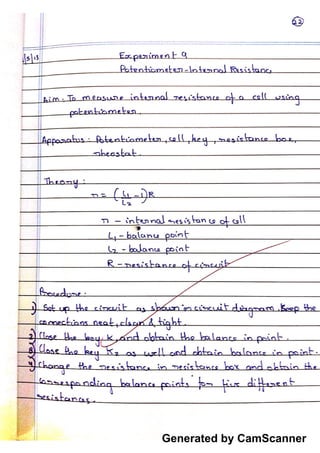 22
Experiment 9
Potentiometer - Internal Resistance
Aim : To measure internal resistance of a cell using
potentiometer.
Apparatus : Potentiometer, cell, key, resistance box,
rheostat.
Theory :
r = (L1/L2 - 1)R
r - internal resistance of cell
L1 - balance point
L2 - balance point
R - resistance of circuit
Procedure :
1) Set up the circuit as shown in circuit diagram. Keep the
connections neat, clean & tight.
2) Close the key K, and obtain the balance in point.
3) Close the key K2 as well and obtain balance in point.
4) Change the resistance in resistance box and obtain the
corresponding balance points for five different
resistances.
Generated by CamScanner